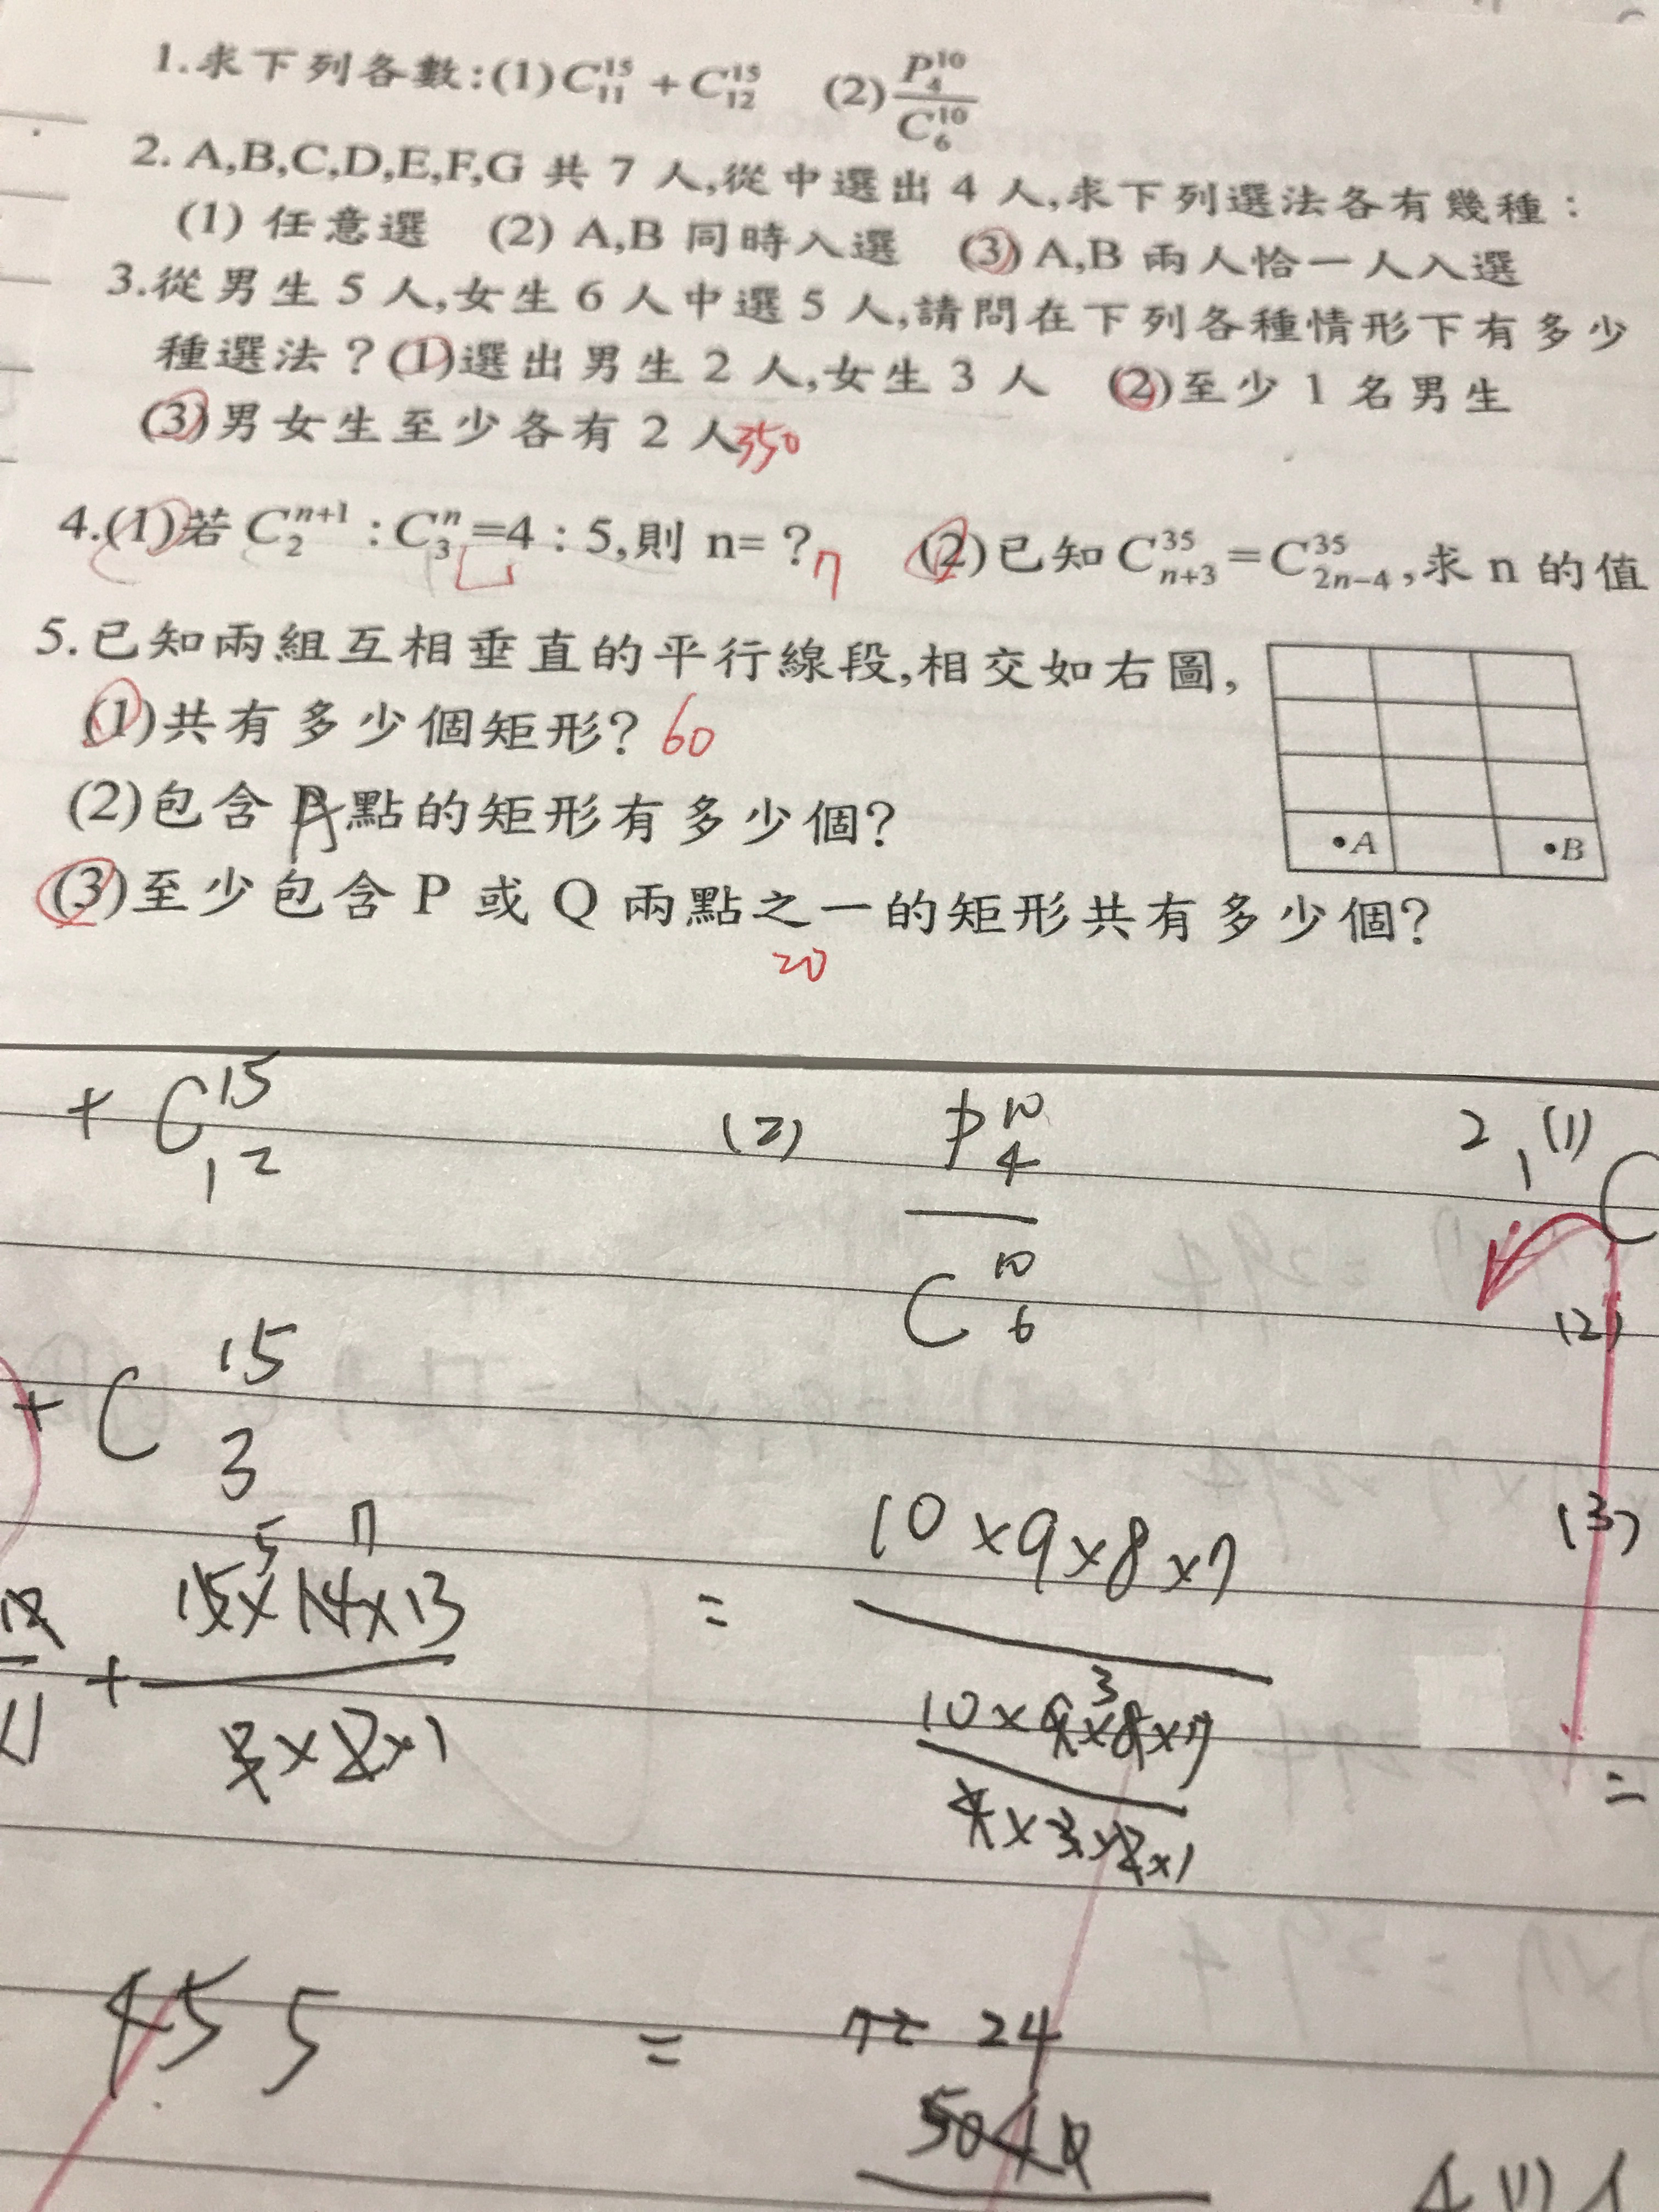 1.求下列各數:(1)C₁₁¹⁵ + C₁₂¹⁵ (2)P₄¹⁰/C₆¹⁰
2. A,B,C,D,E,F,G 共 7 人,從中選出 4 人,求下列選法各有幾種：
(1) 任意選 (2) A,B 同時入選 (3) A,B 兩人恰一人入選
3.從男生 5 人,女生 6 人中選 5 人,請問在下列各種情形下有多少
種選法？(1)選出男生 2 人,女生 3 人 (2)至少 1 名男生
(3)男女生至少各有 2 人 350
4.(1)若 C₂ⁿ⁺¹ : C₃ⁿ =4 : 5,則 n= ? 7 (2)已知 Cₙ₊₃³⁵ = C₂ₙ₋₄³⁵ ,求 n 的值
5.已知兩組互相垂直的平行線段,相交如右圖,
(1)共有多少個矩形? 60
(2)包含 A 點的矩形有多少個?
•A •B
(3)至少包含 P 或 Q 兩點之一的矩形共有多少個?
20
+ C₁₂¹⁵ (2) P₄¹⁰ 2,(1) C
C₆¹⁰ (2)
+ C₃¹⁵
(3)
5 7
+ 15×14×13 = 10×9×8×7
3×2×1
3
10×9×8×7
4×3×2×1
=
455 = 24
5040